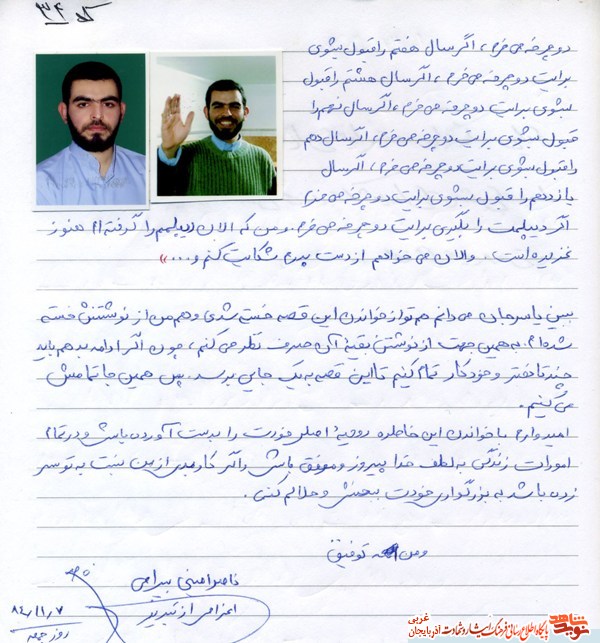 کد ۳۴
دوچرخه می خرم، اگر سال هفتم را قبول بشوی
برایت دوچرخه می خرم، اگر سال هشتم را قبول
بشوی برایت دوچرخه می خرم، اگر سال نهم را
قبول بشوی برایت دوچرخه می خرم، اگر سال دهم
را قبول بشوی برایت دوچرخه می خرم، اگر سال
یازدهم را قبول بشوی برایت دوچرخه می خرم
اگر دیپلمت را بگیری برایت دوچرخه می خرم. ومن که الان دیپلمم را گرفته ام هنوز
نخریده است. والان می خواهم از دست پدرم شکایت کنم و...»
ببین یاسر جان می دانم هم تو از خواندن این قصه خسته شدی و هم من از نوشتنش خسته
شده ام. به همین جهت از نوشتن بقیهٔ آن صرف نظر می کنم، چون اگر ادامه بدهم باید
چند تا دفتر و خودکار تمام کنیم تا این قصه به یک جایی برسد. پس همین جا تمامش
می کنیم.
امیدوارم با خواندن این خاطره روحیهٔ اصلی خودت را بدست آورده باشی و در تمام
امورات زندگی به لطف خدا پیروز و موفق باشی و اگر کار بدی از من نسبت به تو سر
زده باشد به بزرگواری خودت ببخشی و حلالم کنی.
ومن الله توفیق
ناصر امینی بیرامی
اعزامی از تبریز
۸۴/۱۱/۷
روز جمعه
نوید شاهد
آذربایجان غربی
پایگاه اطلاع رسانی فرهنگ ایثار و شهادت